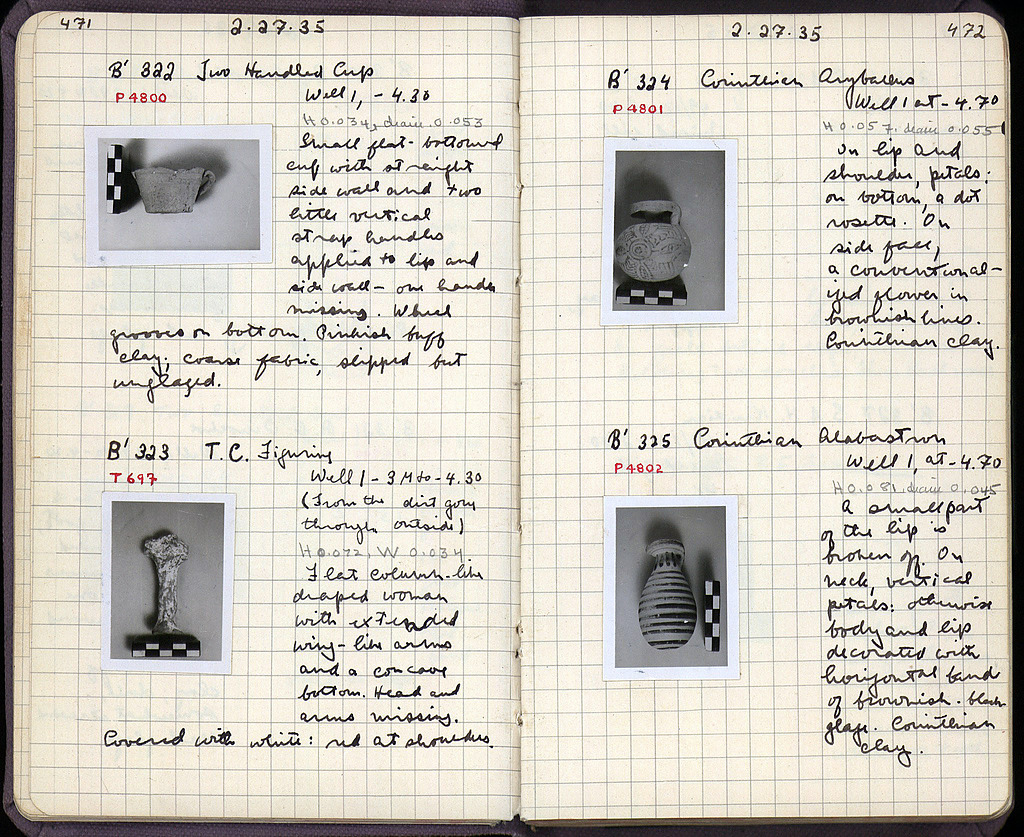 471
2.27.35
B' 322 Two Handled Cup
P 4800
Well 1, - 4.30
H 0.034, diam 0.053
Small flat-bottomed
cup with straight
side wall and two
little vertical
strap handles
applied to lip and
side wall - one handle
missing. Wheel
grooves on bottom. Pinkish buff
clay; coarse fabric, slipped but
unglazed.
B' 323 T.C. Figurine
T 697
Well 1 - 3 M to - 4.30
(From the dirt gone
through outside)
H 0.072, W 0.034
Flat column-like
draped woman
with extended
wing-like arms
and a concave
bottom. Head and
arms missing.
Covered with white: red at shoulders.
2.27.35
472
B' 324 Corinthian Aryballos
P 4801
Well 1 at - 4.70
H 0.057, diam 0.055
On lip and
shoulder, petals;
on bottom, a dot
rosette. On
side face,
a conventional-
ized flower in
brownish lines.
Corinthian clay.
B' 325 Corinthian Alabastron
P 4802
Well 1, at - 4.70
H 0.081, diam 0.045
A small part
of the lip is
broken off. On
neck, vertical
petals: otherwise
body and lip
decorated with
horizontal band
of brownish-black
glaze. Corinthian
clay.